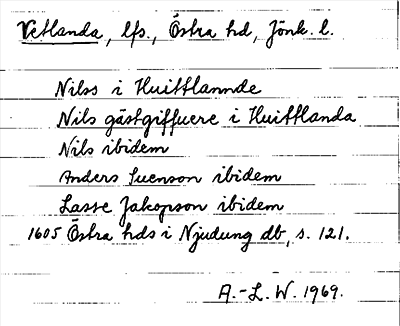 Vetlanda, lfs., Östra hd, Jönk. l.
Nilss i Huitflannde
Nils gästgiffuere i Huitflanda
Nils ibidem
Anders Suenson ibidem
Lasse Jakopson ibidem
1605 Östra hds i Njudung db, s. 121.
A.-L. W. 1969.